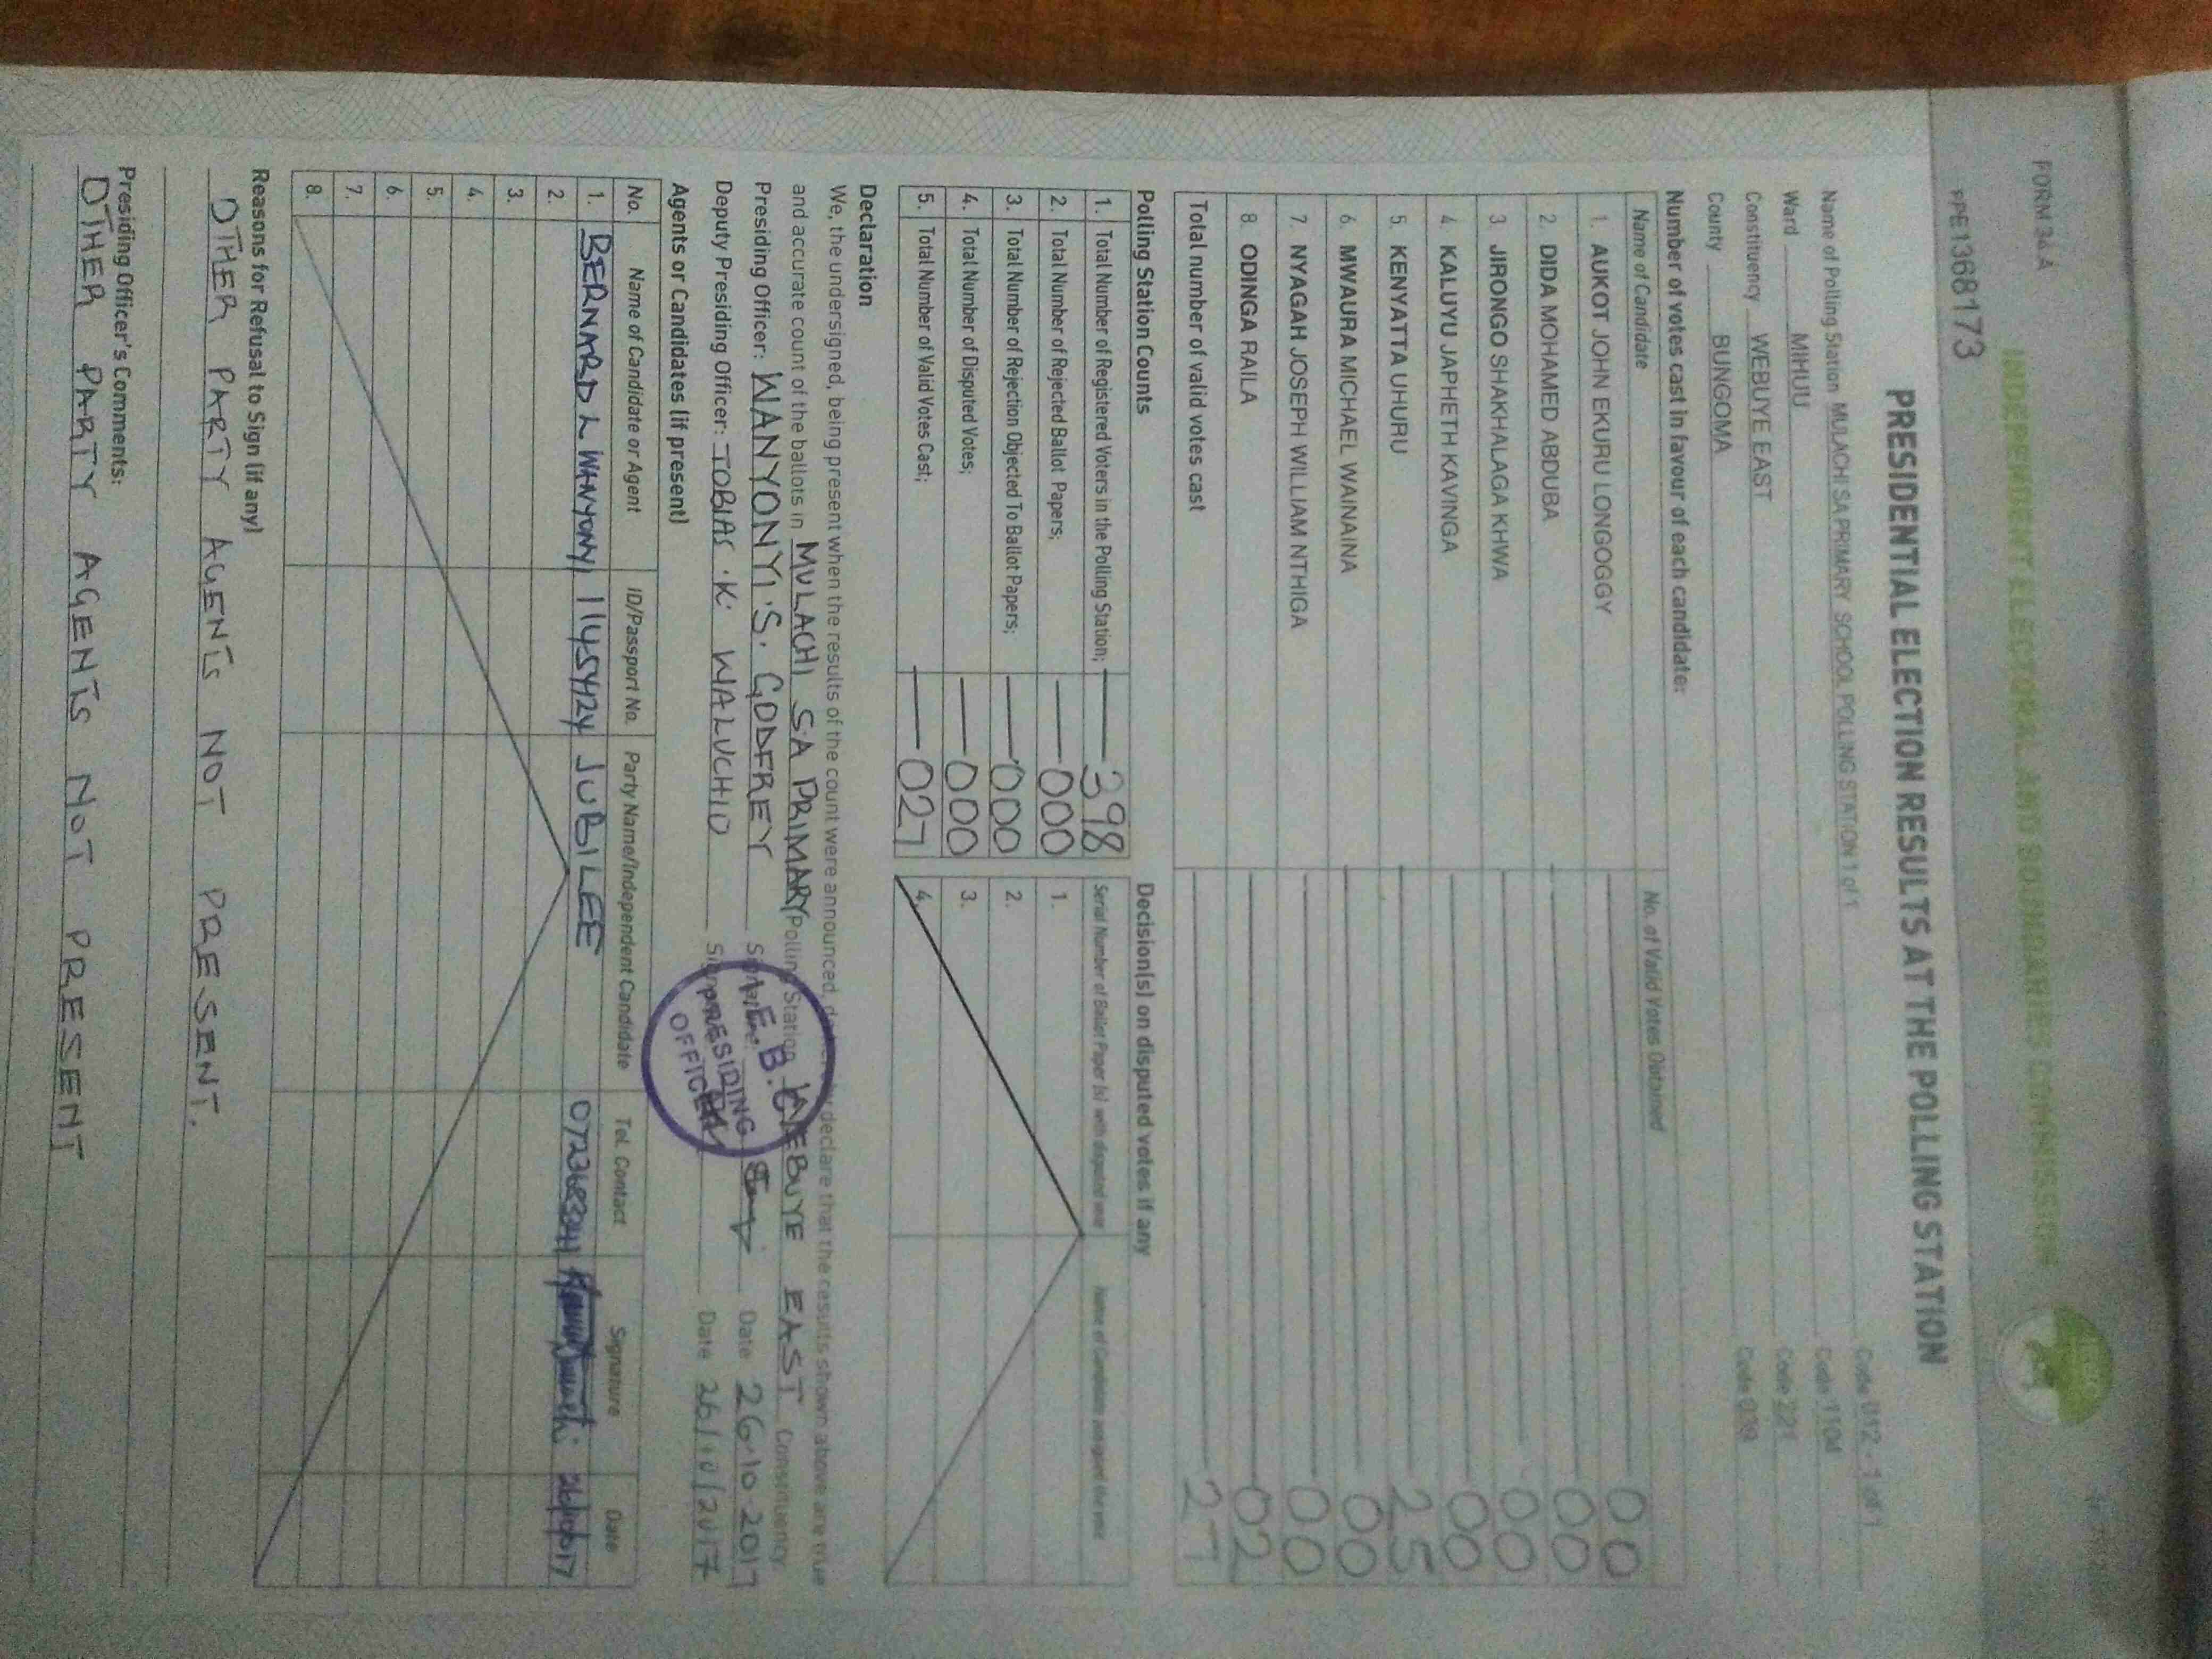 FORM 34A
INDEPENDENT ELECTORAL AND BOUNDARIES COMMISSION
PPE1368173
PRESIDENTIAL ELECTION RESULTS AT THE POLLING STATION
Name of Polling Station MULACHI SA PRIMARY SCHOOL POLLING STATION 1 of 1 Code 012 - 1 of 1
Ward MIHUU Code 1104
Constituency WEBUYE EAST Code 221
County BUNGOMA Code 039
Number of votes cast in favour of each candidate:
Name of Candidate No. of Valid Votes Obtained
1. AUKOT JOHN EKURU LONGOGGY 00
2. DIDA MOHAMED ABDUBA 00
3. JIRONGO SHAKHALAGA KHWA 00
4. KALUYU JAPHETH KAVINGA 00
5. KENYATTA UHURU 25
6. MWAURA MICHAEL WAINAINA 00
7. NYAGAH JOSEPH WILLIAM NTHIGA 00
8. ODINGA RAILA 02
Total number of valid votes cast 27
Polling Station Counts
1. Total Number of Registered Voters in the Polling Station; 398
2. Total Number of Rejected Ballot Papers; 000
3. Total Number of Rejection Objected To Ballot Papers; 000
4. Total Number of Disputed Votes; 000
5. Total Number of Valid Votes Cast; 027
Decision(s) on disputed votes if any
Serial Number of Ballot Paper (s) with disputed vote Name of Candidate assigned the vote
1.
2.
3.
4.
Declaration
We, the undersigned, being present when the results of the count were announced, do declare that the results shown above are true
and accurate count of the ballots in MULACHI S.A PRIMARY Polling Station WEBUYE EAST Constituency
Presiding Officer: WANYONYI S. GODFREY Signature: Date 26.10.2017
Deputy Presiding Officer: TOBIAS .K. WALUCHIO Date 26/10/2017
I.E.B.C
PRESIDING
OFFICER
Agents or Candidates (if present)
No. Name of Candidate or Agent ID/Passport No. Party Name/Independent Candidate Tel. Contact Signature Date
1. BERNARD L WANYONYI 11454124 JUBILEE 26/10/017
2.
3.
4.
5.
6.
7.
8.
Reasons for Refusal to Sign (if any)
OTHER PARTY AGENTS NOT PRESENT.
Presiding Officer's Comments:
OTHER PARTY AGENTS NOT PRESENT